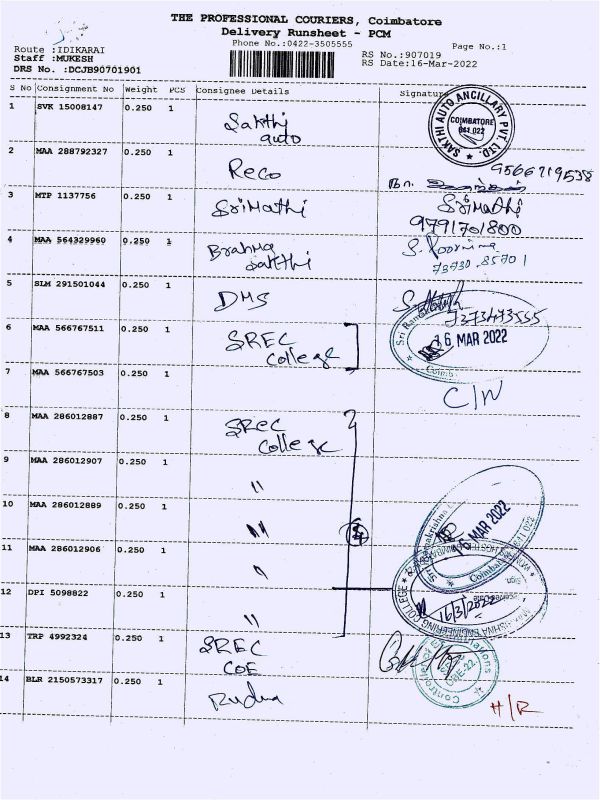 THE PROFESSIONAL COURIERS, Coimbatore
Delivery Runsheet - PCM
Phone No.:0422-3505555
Page No.:1
Route :IDIKARAI
Staff :MUKESH
DRS No. :DCJB90701901
RS No.:907019
RS Date:16-Mar-2022
S No Consignment No Weight PCS Consignee Details Signature
1 SVK 15008147 0.250 1 Sakthi auto
SAKTHI AUTO ANCILLARY PVT. LTD.
COIMBATORE
641 022
2 MAA 288792327 0.250 1 Reco 9566719538
3 MTP 1137756 0.250 1 SriMathi SriMathi
9791701800
4 MAA 564329960 0.250 1 Brahma Sakthi S. Poornima
73730 85701
5 SLM 291501044 0.250 1 DMS
7373473555
6 MAA 566767511 0.250 1 SREC College
16 MAR 2022
7 MAA 566767503 0.250 1
C/N
8 MAA 286012887 0.250 1 SREC College
9 MAA 286012907 0.250 1 "
10 MAA 286012889 0.250 1 "
16 MAR 2022
11 MAA 286012906 0.250 1 "
12 DPI 5098822 0.250 1 "
16/3/2022
13 TRP 4992324 0.250 1 SREC COE
14 BLR 2150573317 0.250 1 Rudra
H/R